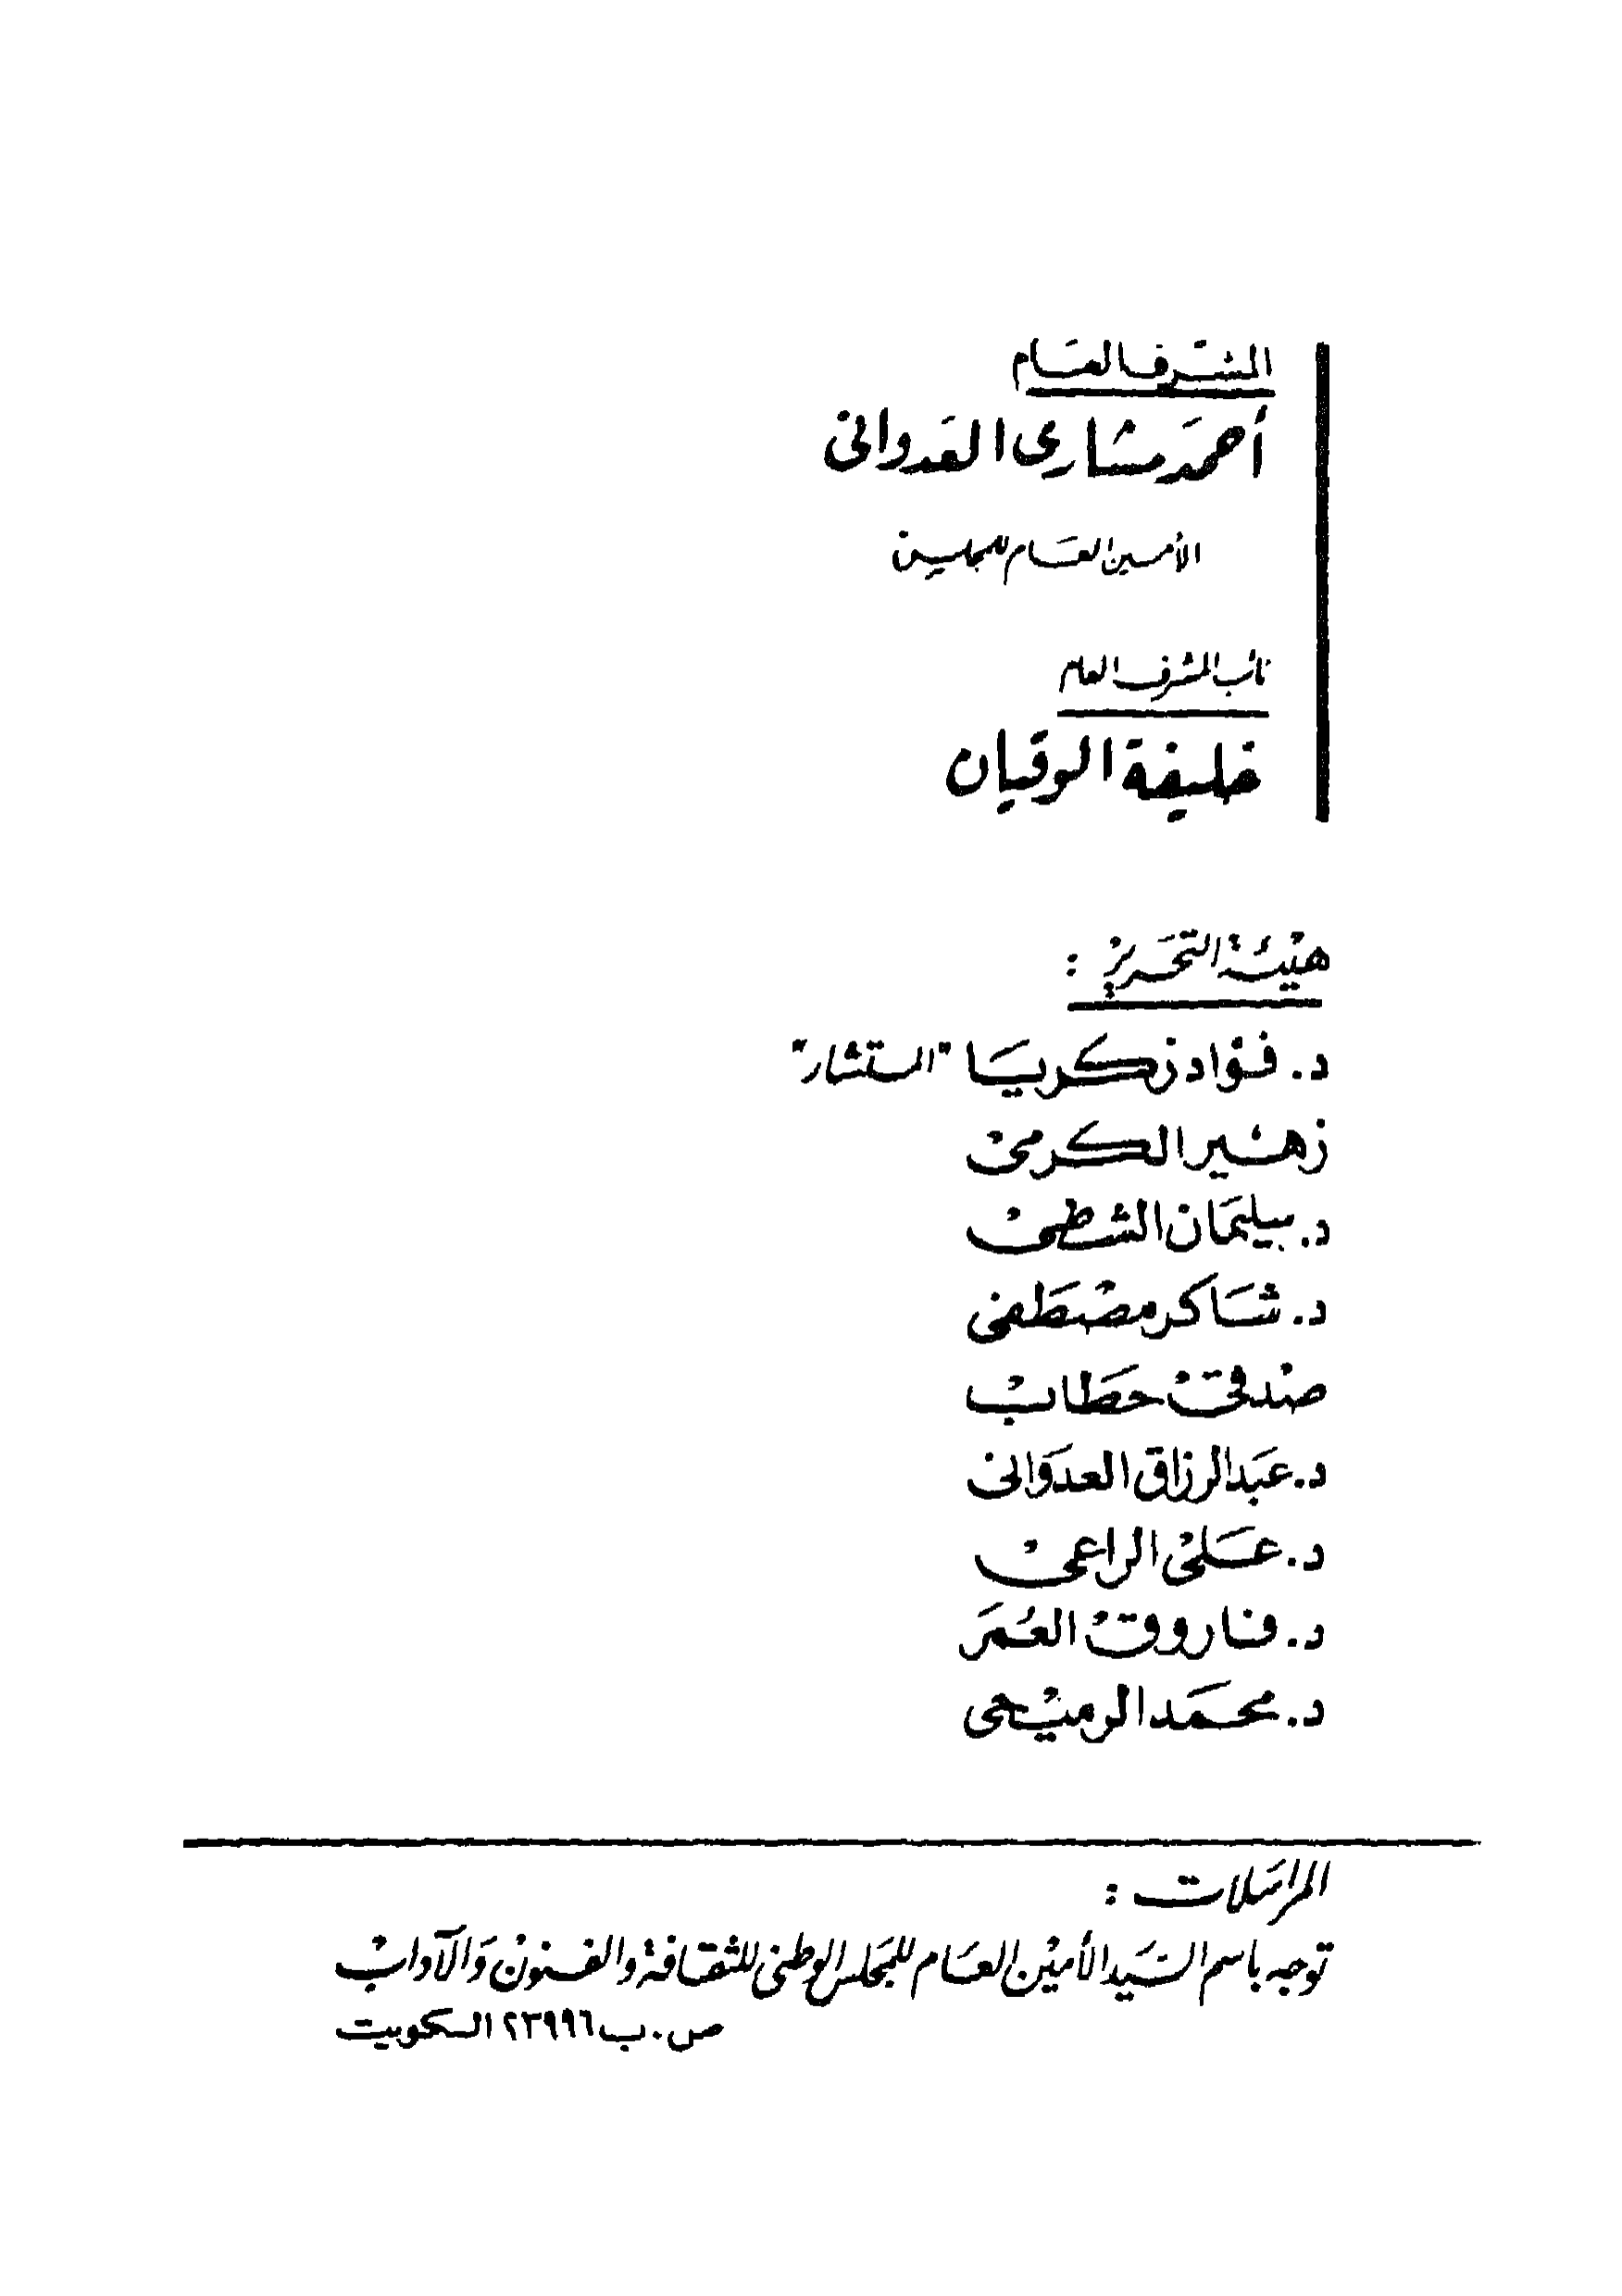 المشرف العام
أحمد مشاري العدواني
الأمين العام للمجلس
نائب المشرف العام
خليفة الوقيان
هيئة التحرير :
د. فؤاد زكريا "المستشار"
زهير الكرمي
د. سليمان الشطي
د. شاكر مصطفى
صدقي حطاب
د. عبد الرزاق العدواني
د. علي الراعي
د. فاروق العمر
د. محمد الرميحي
المراسلات :
توجه باسم السيد الأمين العام للمجلس الوطني للثقافة والفنون والآداب
ص . ب ٢٣٩٩٦ الكويت